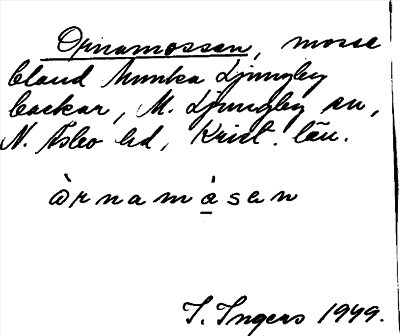 Ornamossen, mosse
bland Munka Ljungby
backar, M. Ljungby sn,
N. Åsbo hd, Krist. län.
òrnamåsen
I. Ingers 1949.